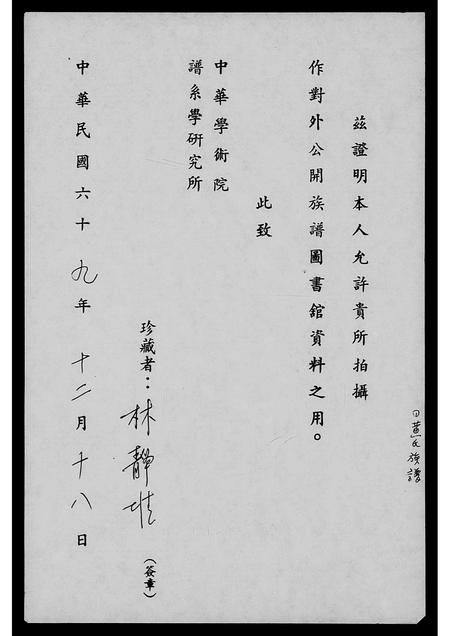 茲證明本人允許貴所拍攝
作對外公開族譜圖書舘資料之用。
此致
中華學術院
譜系學研究所
珍藏者：林靜
（簽章）
中華民國六十九年十二月十八日
黃氏族譜